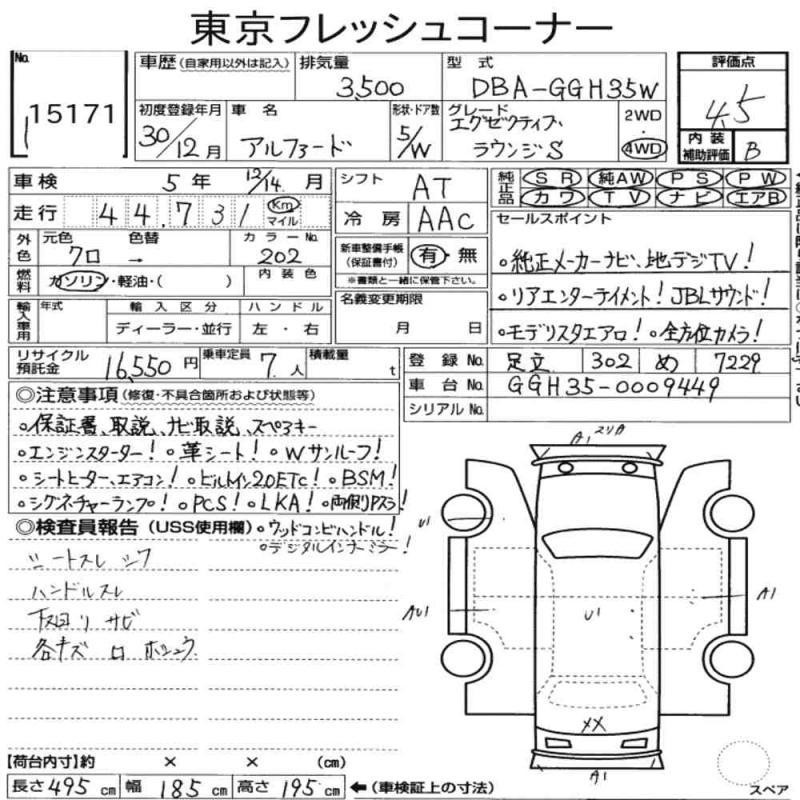 東京フレッシュコーナー
No. 15171
車歴 (自家用以外は記入)
排気量 3,500
型式 DBA-GGH35W
評価点 4.5
初度登録年月 30/12月
車名 アルファード
形状・ドア数 5/W
グレード エグゼクティブ
ラウンジS
2WD
4WD
内装
補助評価 B
車検 5年 12/14月
シフト AT
純正品 SR 純AW PS PW
カワ TV ナビ エアB
走行 44.731 Km
マイル
冷房 AAC
セールスポイント
外色 元色 クロ 色替 → カラーNo. 202
新車整備手帳
(保証書付) 有・無
※書類と一緒に保管下さい。
。純正メーカーナビ、地デジTV!
燃料 ガソリン・軽油・( ) 内装色
名義変更期限
月 日
。リアエンターテイメント! JBLサウンド!
輸入車用 年式 輸入区分 ハンドル
ディーラー・並行 左・右
。モデリスタエアロ! 。全方位カメラ!
リサイクル
預託金 16,550円
乗車定員 7人
積載量 t
登録No. 足立 302 め 7229
車台No. GGH35-0009449
シリアルNo.
◎注意事項(修復・不具合箇所および状態等)
。保証書、取説、ナビ取説、スペアキー
。エンジンスターター! 。革シート! 。Wサンルーフ!
。シートヒーター、エアコン! 。ビルトイン2.0ETC! 。BSM!
。シグネチャーランプ! 。PCS! 。LKA! 。両側りパスラ!
◎検査員報告(USS使用欄) 。ウッドコンビハンドル!
。デジタルインナーミラー!
シートスレ シワ
ハンドルスレ
下回り サビ
各キズ ロ ホシュウ
A1 スリA
U1
AU1
U1
A1
XX
A1
スペア
【荷台内寸】約 × × (cm)
長さ 495 cm 幅 185 cm 高さ 195 cm ←(車検証上の寸法)